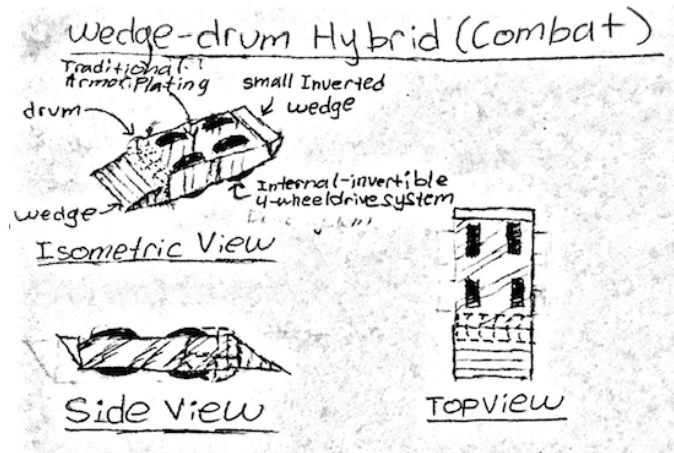 Wedge-drum Hybrid (Combat)
Traditional
Armor Plating
small Inverted
wedge
drum
Internal-invertible
4-wheel drive system
wedge
Isometric View
Side View
TOP VIEW